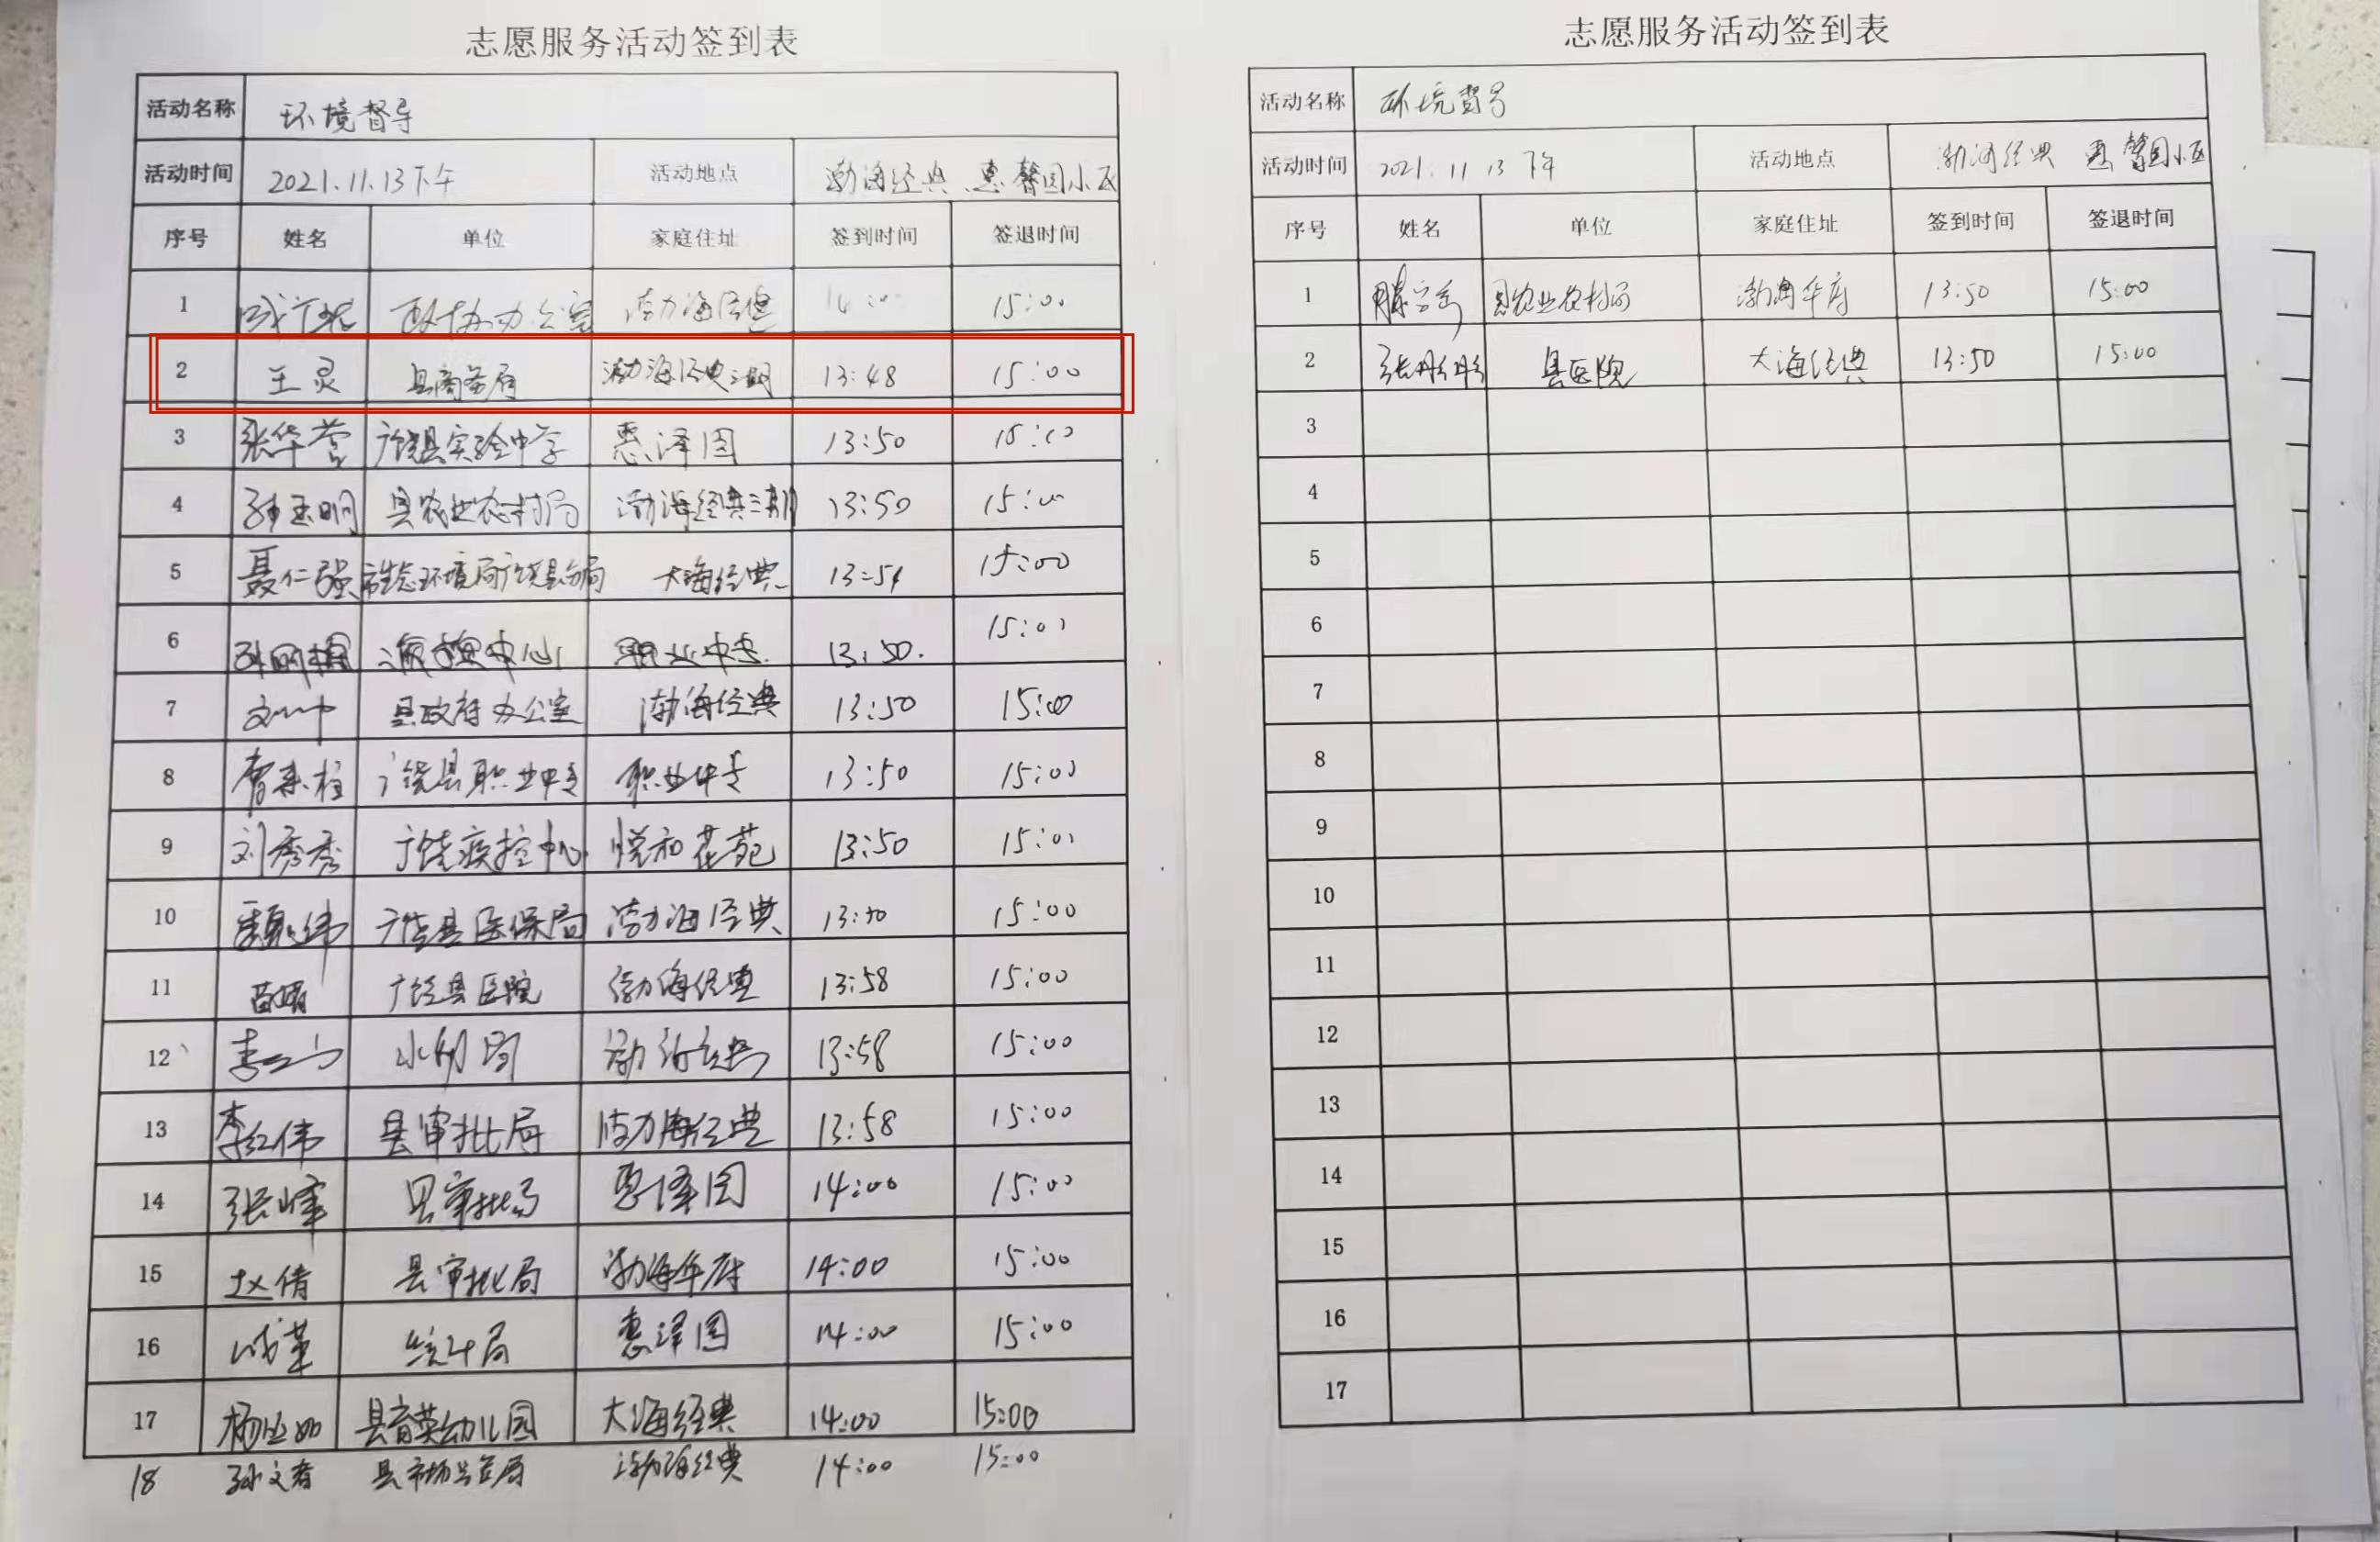 志愿服务活动签到表
活动名称 环境督导
活动时间 2021.11.13下午 活动地点 渤海经典、惠馨园小区
序号 姓名 单位 家庭住址 签到时间 签退时间
1 政协办公室 渤海经典 14:00 15:00
2 王灵 县商务局 渤海经典三期 13:48 15:00
3 张华营 广饶县实验中学 惠泽园 13:50 15:00
4 孙玉明 县农业农村局 渤海经典三期 13:50 15:00
5 聂仁强 市生态环境局广饶县分局 大海经典 13:54 15:00
6 中心 职业中专 13:50. 15:00
7 县政府办公室 渤海经典 13:50 15:00
8 广饶县职业中专 职业中专 13:50 15:00
9 刘秀秀 广饶疾控中心 悦和花苑 13:50 15:00
10 伟 广饶县医保局 渤海经典 13:50 15:00
11 苗 广饶县医院 渤海经典 13:58 15:00
12 李 水利局 渤海经典 13:58 15:00
13 李红伟 县审批局 渤海经典 13:58 15:00
14 张峰 县审批局 惠泽园 14:00 15:00
15 赵倩 县审批局 渤海华府 14:00 15:00
16 统计局 惠泽园 14:00 15:00
17 杨 县育英幼儿园 大海经典 14:00 15:00
18 孙文 县市场监管局 渤海经典 14:00 15:00
志愿服务活动签到表
活动名称 环境督导
活动时间 2021.11 13 下午 活动地点 渤海经典 惠馨园小区
序号 姓名 单位 家庭住址 签到时间 签退时间
1 县农业农村局 渤海华府 13:50 15:00
2 张彤彤 县医院 大海经典 13:50 15:00
3
4
5
6
7
8
9
10
11
12
13
14
15
16
17